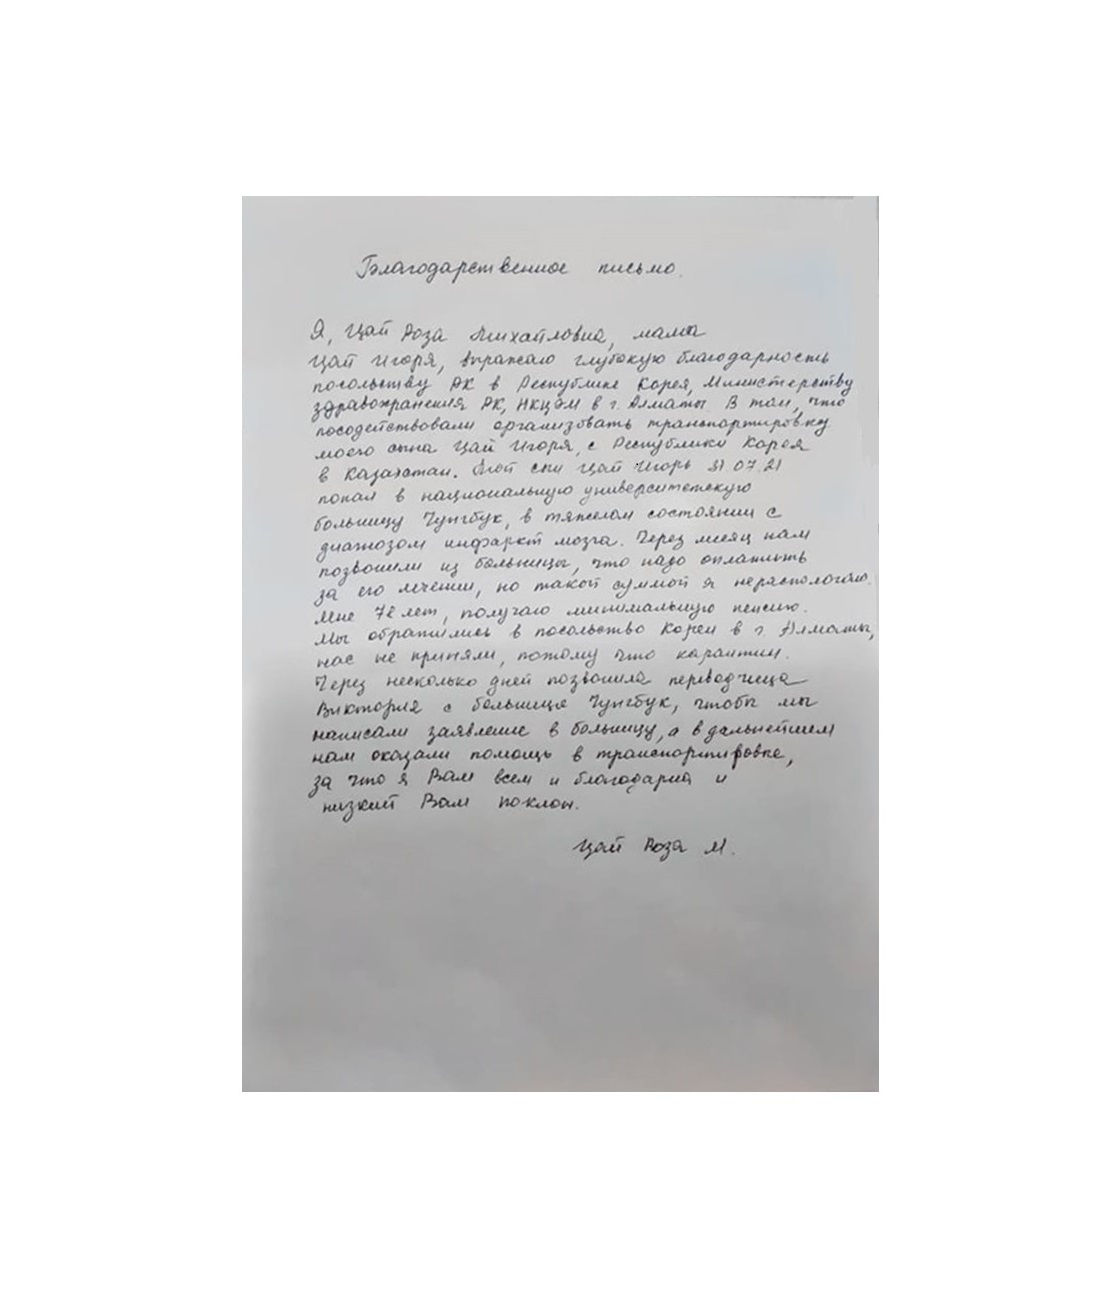 Благодарственное письмо.
Я, Цай Роза Михайловна, мама
Цай Игоря, выражаю глубокую благодарность
посольству РК в Республике Корея, Министерству
здравоохранения РК, НКЦЭМ в г. Алматы. В том, что
посодействовали организовать транспортировку
моего сына Цай Игоря, с Республики Корея
в Казахстан. Мой сын Цай Игорь 31.07.21
попал в национальную университетскую
больницу Чунгбук, в тяжелом состоянии с
диагнозом инфаркт мозга. Через месяц нам
позвонили из больницы, что надо оплатить
за его лечении, но такой суммой я нерасполагаю.
Мне 72 лет, получаю минимальную пенсию.
Мы обратились в посольство Кореи в г. Алматы,
нас не приняли, потому что карантин.
Через несколько дней позвонила переводчица
Виктория с больнице Чунгбук, чтобы мы
написали заявление в больницу, а в дальнейшем
нам оказали помощь в транспортировке,
за что я Вам всем и благодарна и
низкий Вам поклон.
Цай Роза М.